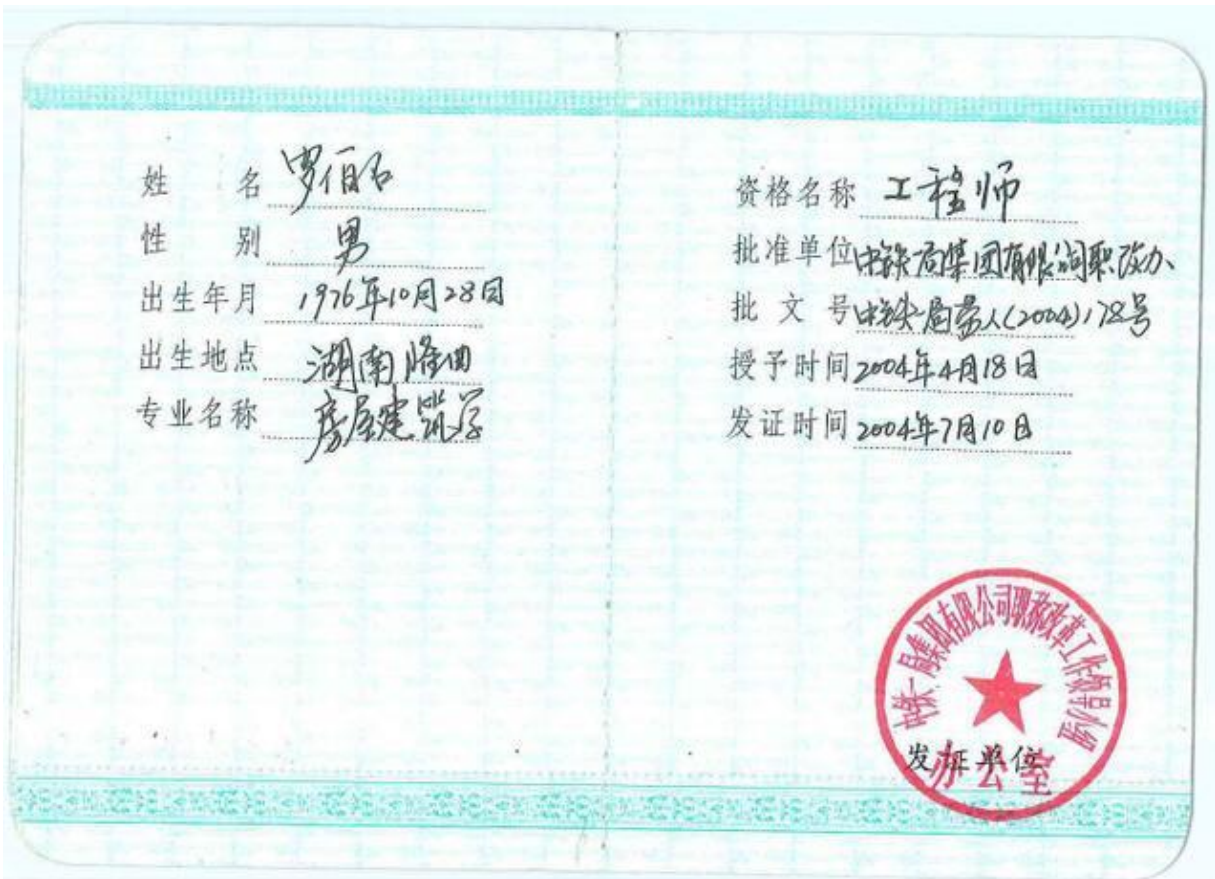 姓 名 罗伯名
性 别 男
出生年月 1976年10月28日
出生地点 湖南隆回
专业名称 房屋建筑学
资格名称 工程师
批准单位 中铁一局集团有限公司职改办
批文号 中铁一局劳人(2004)178号
授予时间 2004年4月18日
发证时间 2004年7月10日
中铁一局集团有限公司职称改革工作领导小组
办公室
发证单位